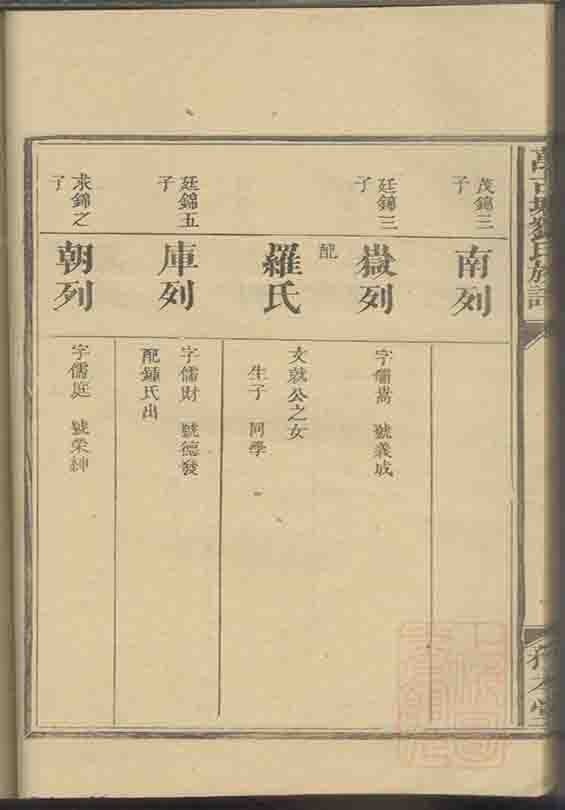 氏族譜
茂錦三子
南列
廷錦三子
嶽列
字儒嵩 號義成
配
羅氏
文就公之女
生子 同學
廷錦五子
庫列
字儒財 號德發
配鍾氏出
求錦之子
朝列
字儒庭 號榮紳